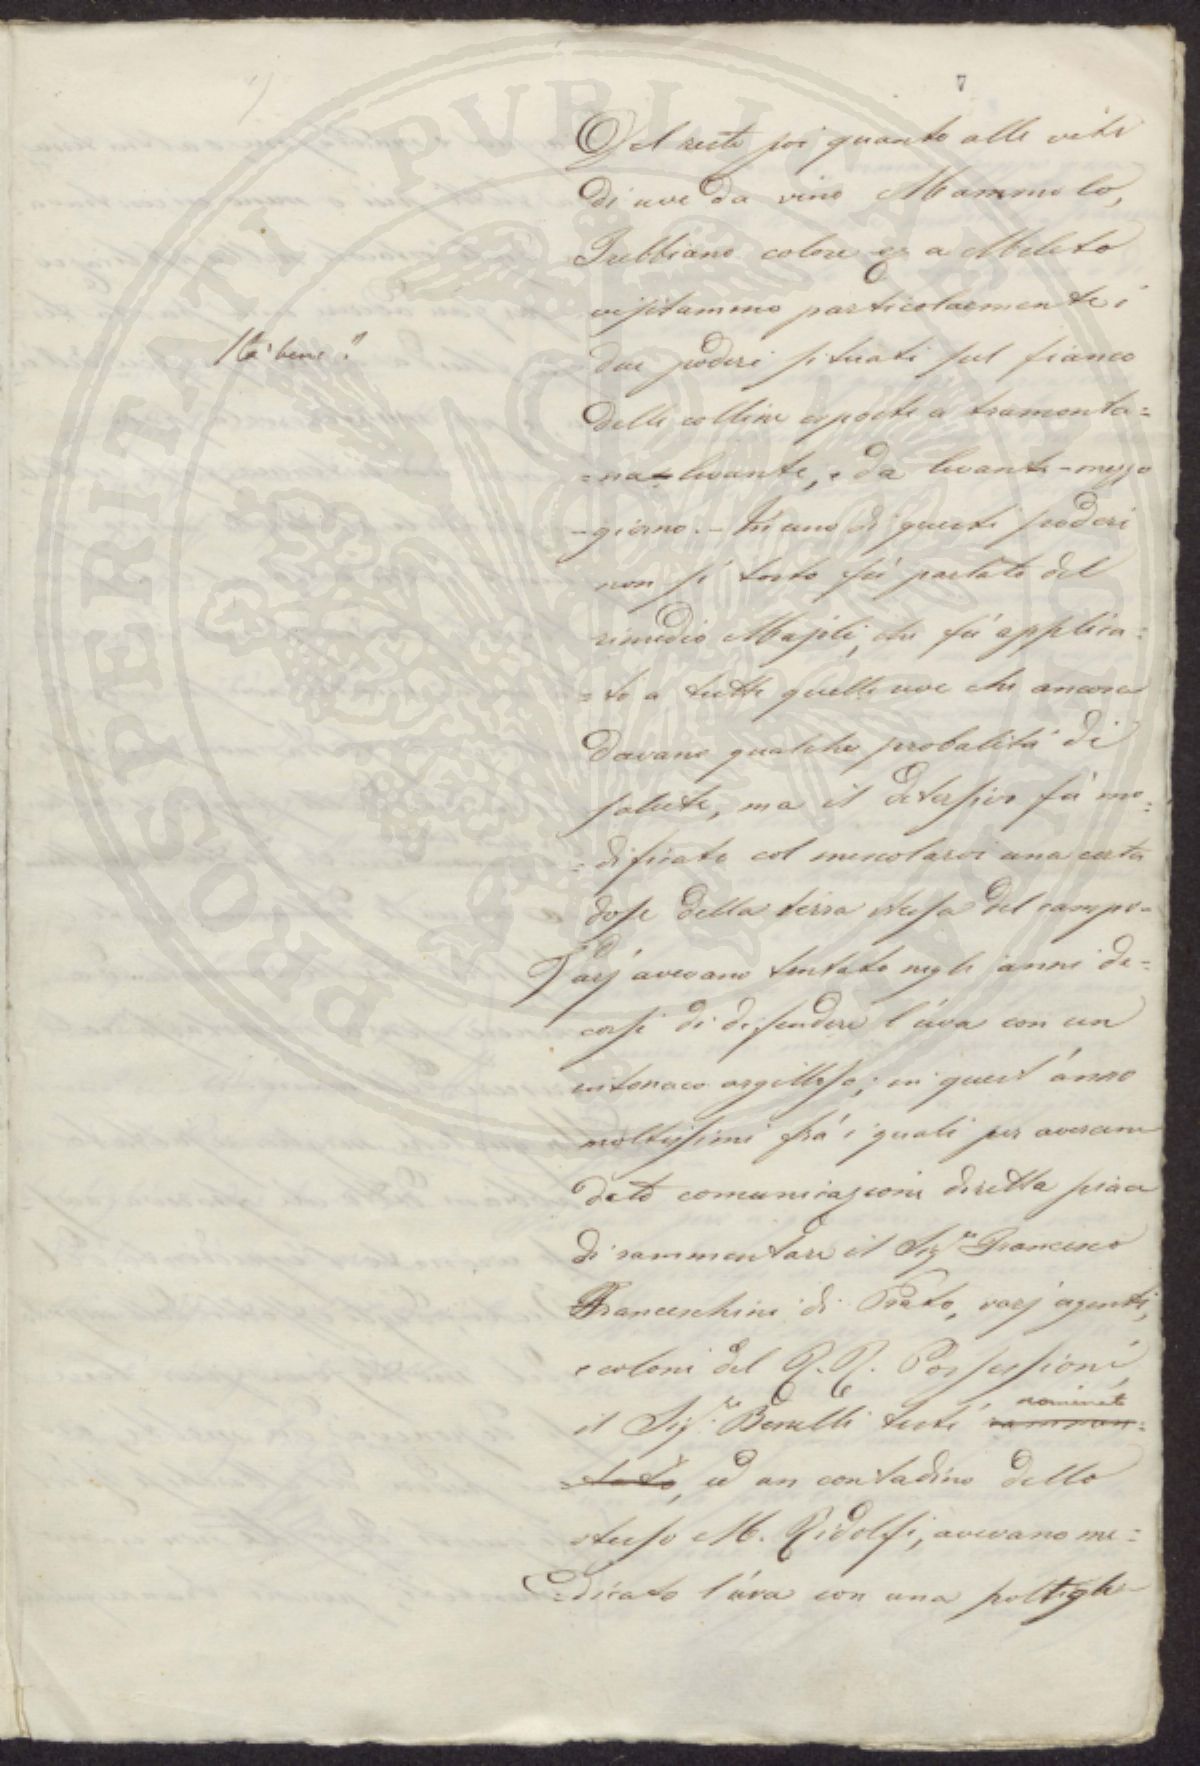 7
Del resto poi quanto alle viti
di uve da vino Mammolo,
Trebbiano colore & a Meleto
visitammo particolarmente i
Sta bene?
due poderi situati sul fianco
delle colline esposte a tramonta=
=na-levante, e da levante-mezzo
-giorno. - In uno di questi poderi
non sì tosto fù parlato del
rimedio Majoli, che fù applica=
=to a tutte quelle uve che ancora
davano qualche probalità di
salute, ma il detersivo fù mo=
=dificato col mescolarvi una certa
dose della terra stessa del campo-
Varj avevano tentato negli anni de=
corsi di difendere l'uva con un
intonaco argilloso; in quest'anno
moltissimi frà i quali per avercene
dato comunicazione diretta piace
di rammentare il Sig.re Francesco
Franceschini di Prato, varj agenti,
e coloni del R.R. Possessioni,
il Sig.re Benelli testè nominato
rammen=
=tato, ed un contadino dello
stesso M. Ridolfi, avevano me=
=dicato l'uva con una poltiglia